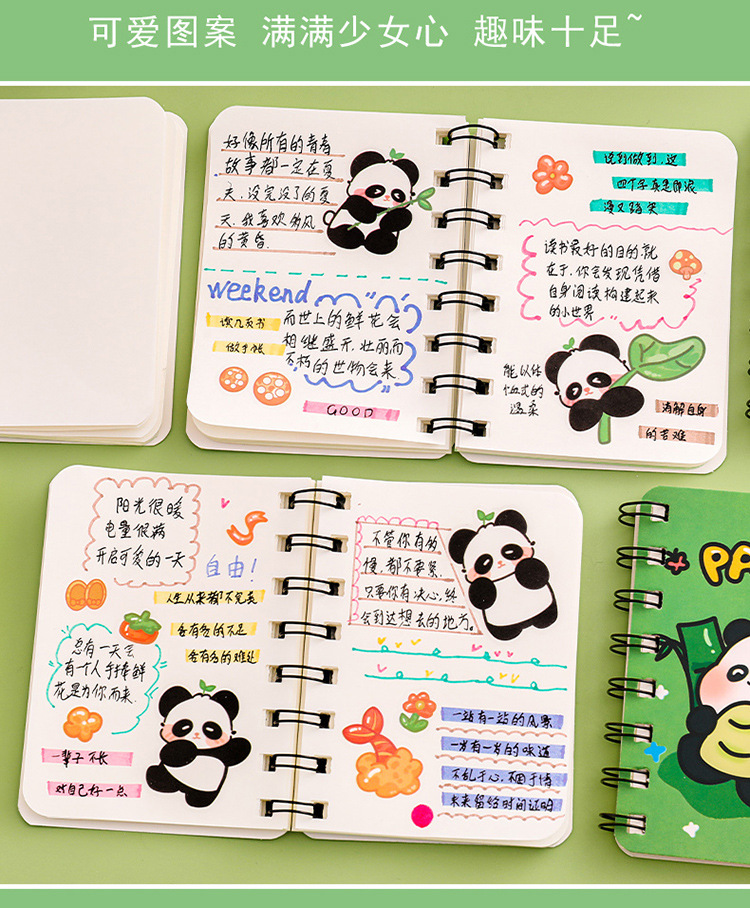 可爱图案 满满少女心 趣味十足~
好像所有的青春
故事都一定在夏
天,没完没了的夏
天,我喜欢的风
的黄昏.
weekend
读几页书
做手帐
而世上的鲜花会
相继盛开,壮丽而
不朽的世物会来.
GOOD
说到做到,这
四个字真是即浪
漫又踏实
读书最好的目的,就
在于,你会发现凭借
自身阅读构建起来
的小世界
能以
式的
温柔
消解自身
的苦难
阳光很暖
电量很满
开启可爱的一天
自由!
人生从来都不完美
会有多的不足
会有多的难过
总有一天会
有一个人手捧鲜
花是为你而来.
一辈子不长
对自己好一点
不管你有多
慢,都不要紧.
只要你有决心,终
会到达想去的地方。
一站有一站的风景
一岁有一岁的味道
不乱于心,不困于情
未来留给时间证明
PA